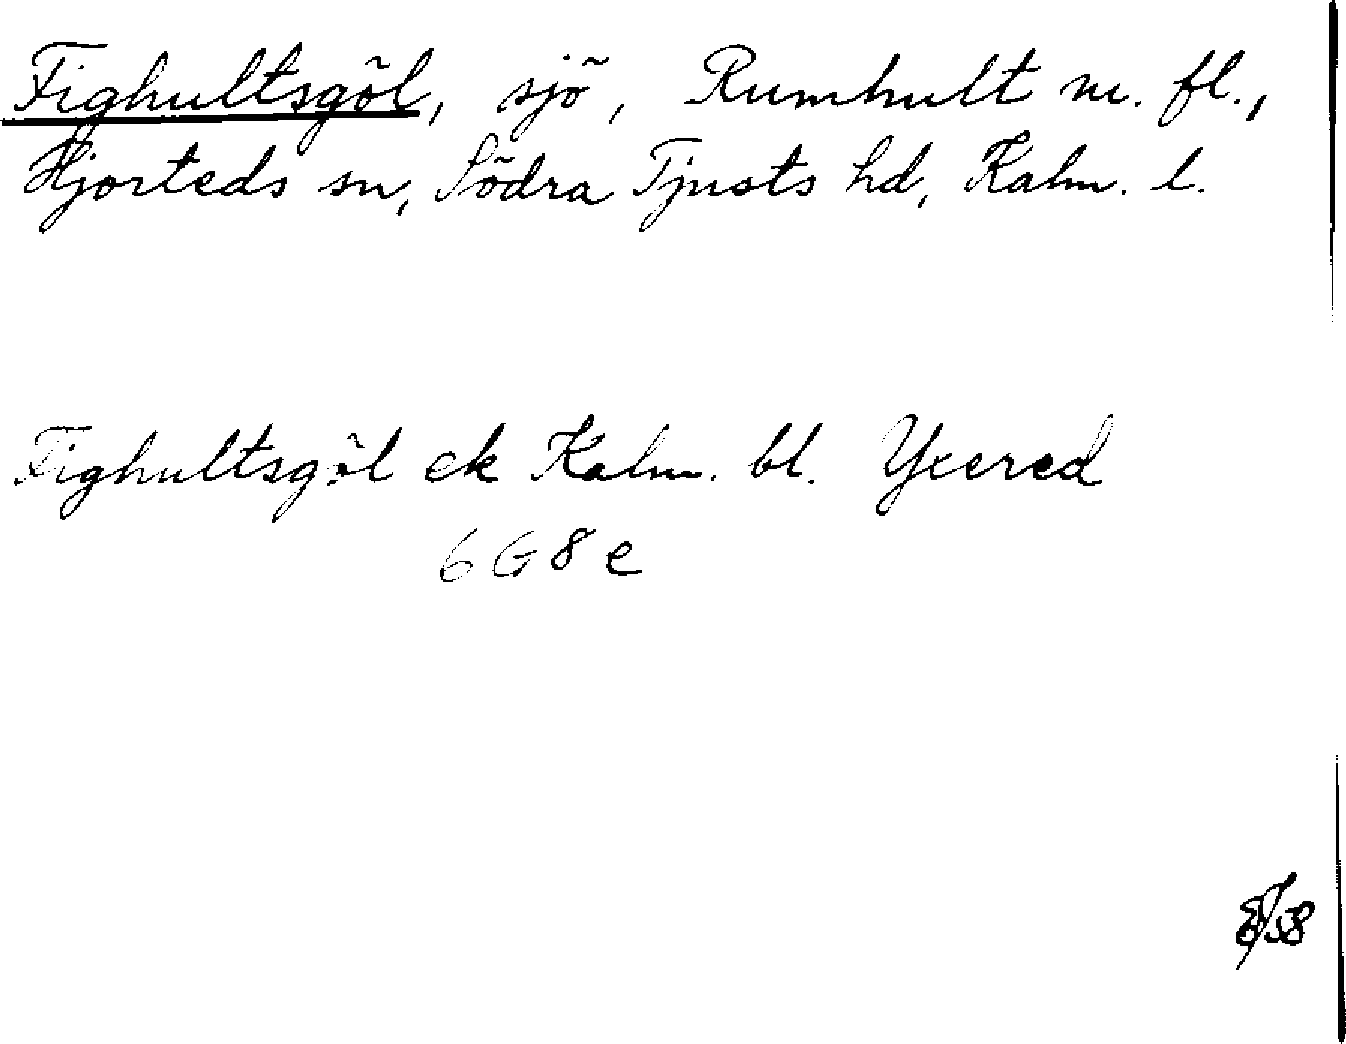 Fighultsgöl, sjö, Rumhult m. fl.,
Hjorteds sn, Södra Tjusts hd, Kalm. l.
Fighultsgöl ek Kalm. bl. Yxered
6G8e